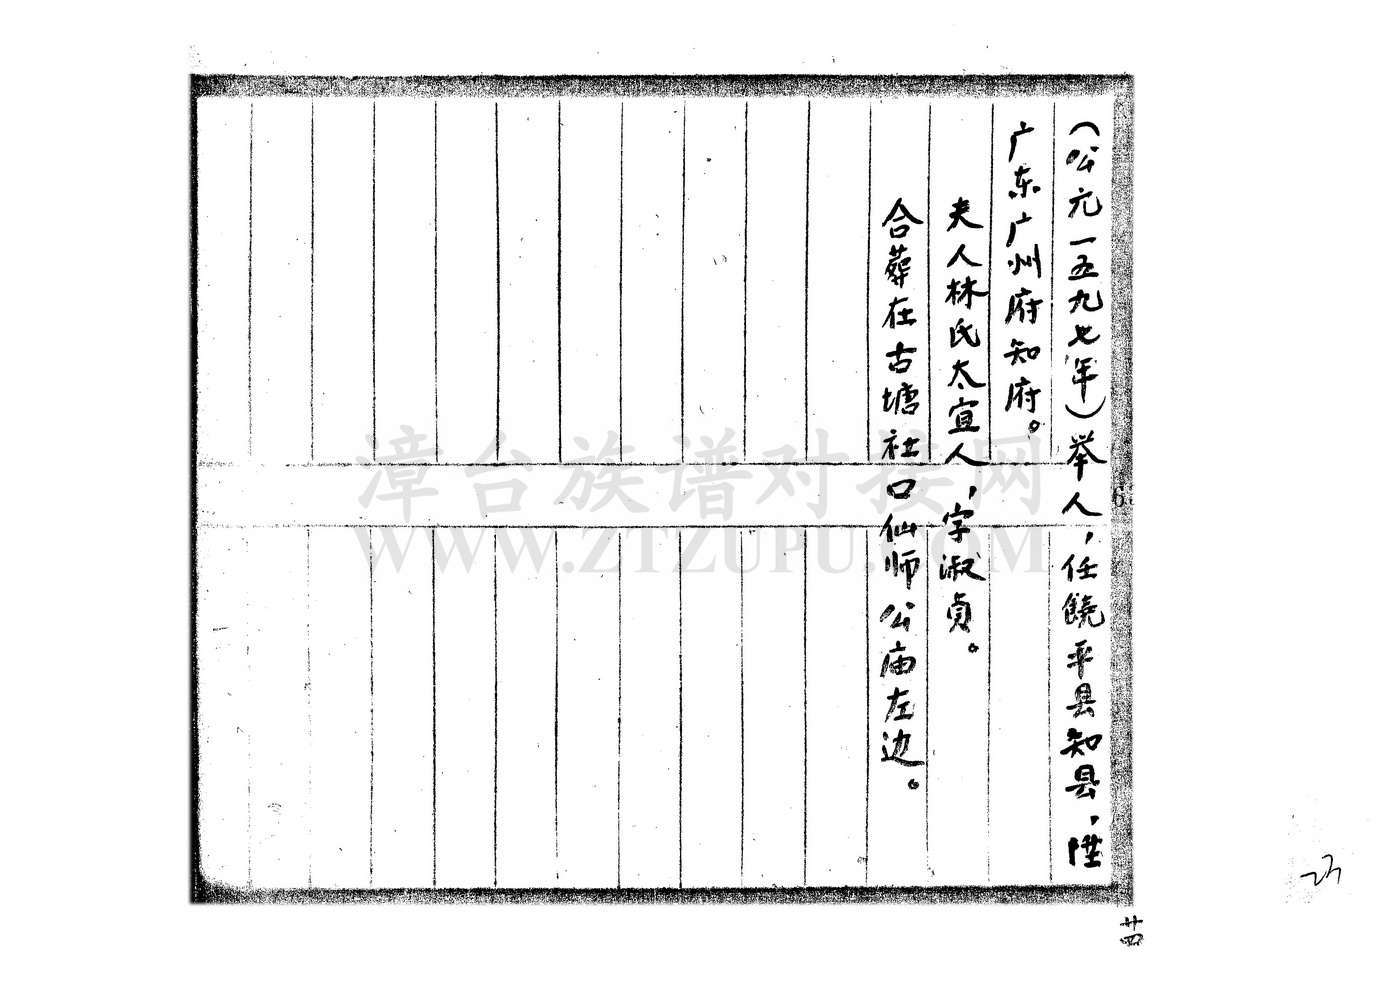 （公元一五九七年）举人，任饒平县知县，陞
广东广州府知府。
夫人林氏太宜人，字淑贞。
合葬在古塘社口仙师公庙左边。
漳台族谱对接网
WWW.ZTZUPU.COM
6
23
廿四